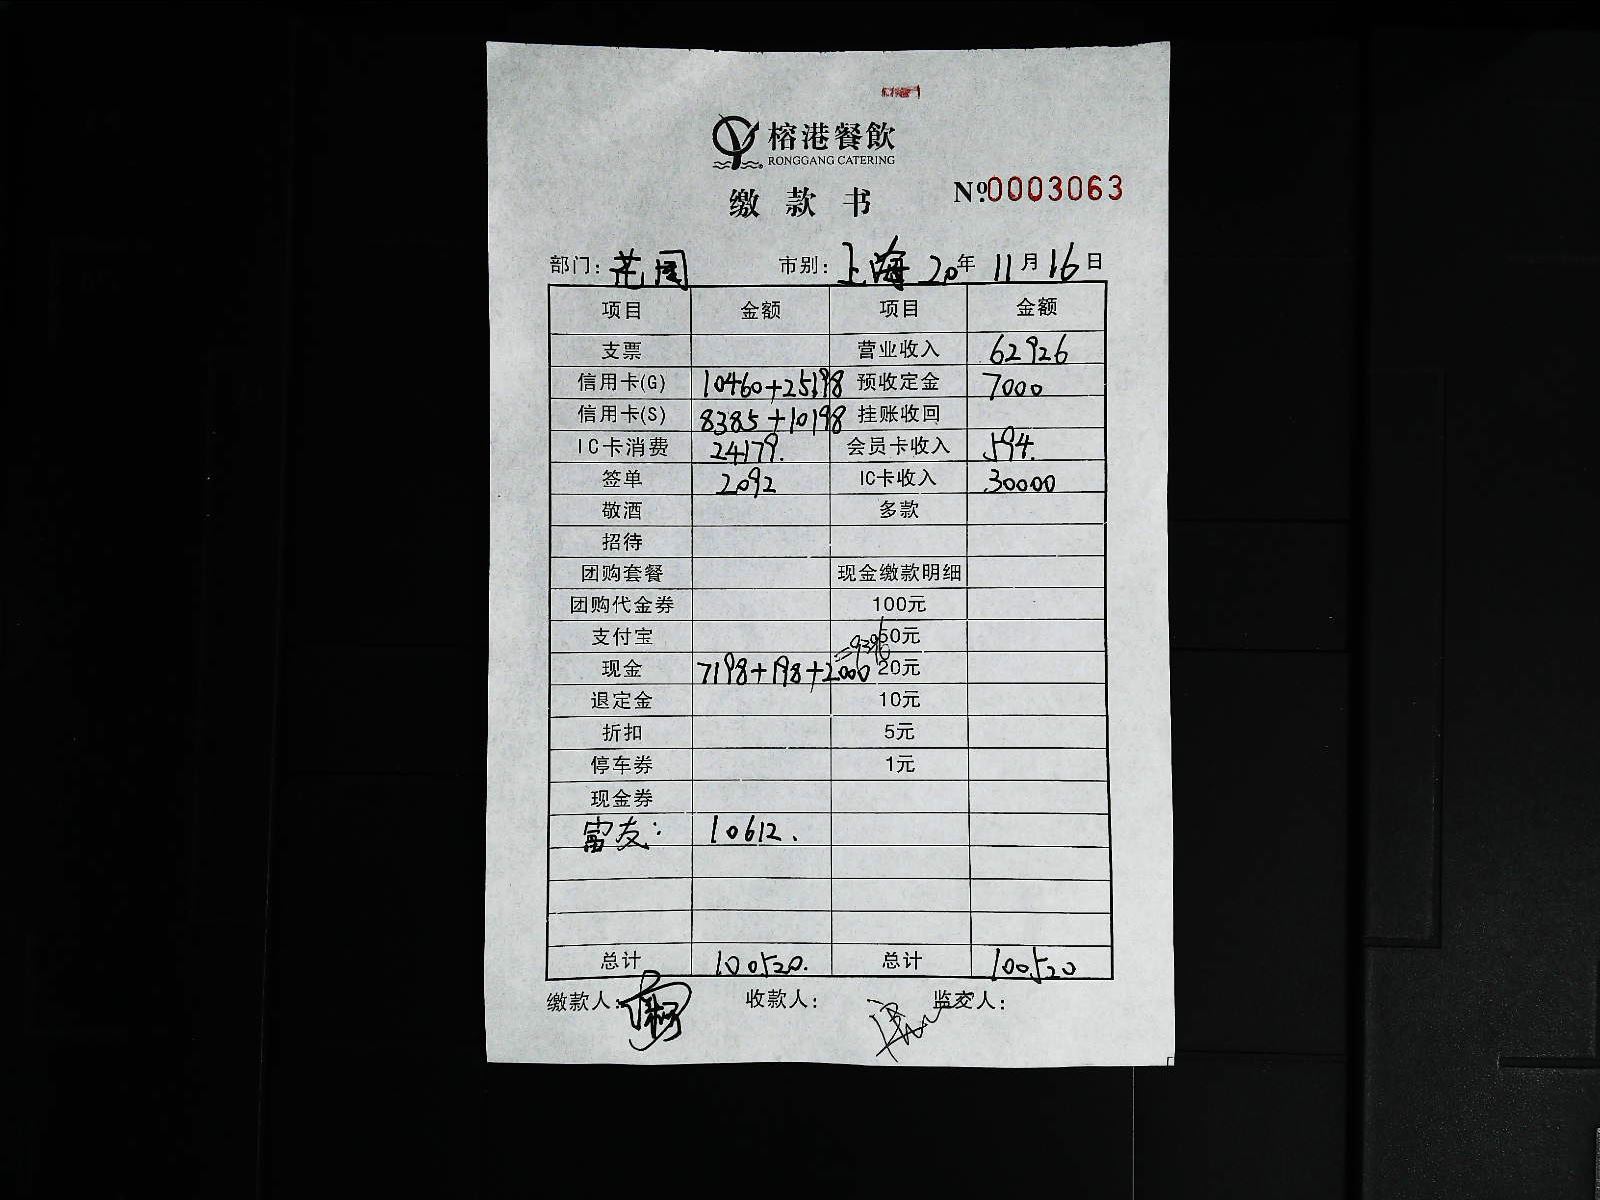 榕港餐飲
RONGGANG CATERING
缴款书 №0003063
部门：花园 市别：上海 20年 11月 16日
项目 金额 项目 金额
支票 营业收入 62926
信用卡(G) 10460+25198 预收定金 7000
信用卡(S) 8385+10198 挂账收回
IC卡消费 24179. 会员卡收入 594.
签单 2092 IC卡收入 30000
敬酒 多款
招待
团购套餐 现金缴款明细
团购代金券 100元
支付宝 50元
现金 7198+198+2000=9396 20元
退定金 10元
折扣 5元
停车券 1元
现金券
富友： 10612.
总计 100520. 总计 100520
缴款人： 收款人： 监交人：